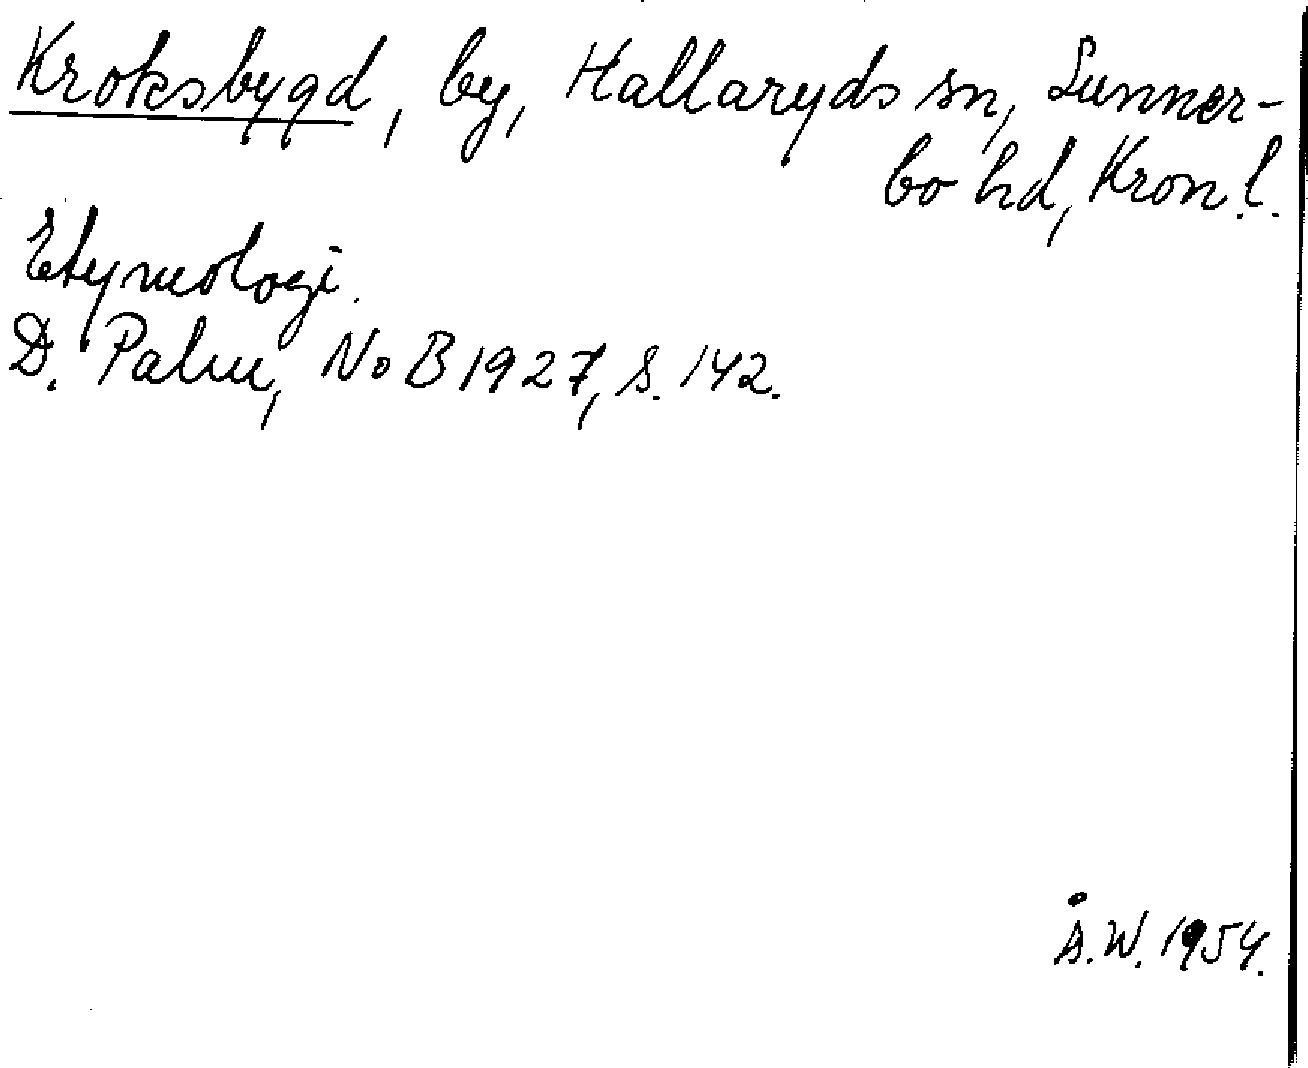 Kroksbygd, by, Hallaryds sn, Sunner-
bo hd, Kron.l.
Etymologi.
D. Palm, NoB 1927, s. 142.
Å.W. 1954.